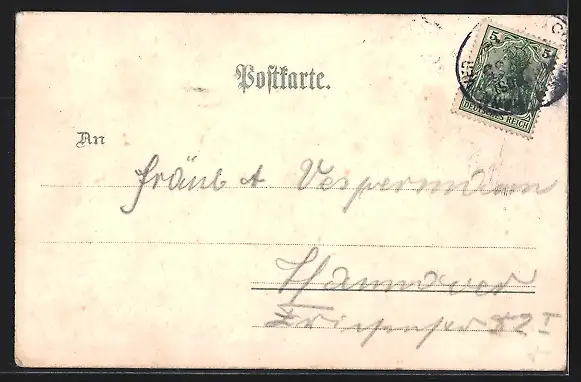 Postkarte.
5 5
DEUTSCHES REICH
An
Fräul A Vespermann
Hannover
52 I